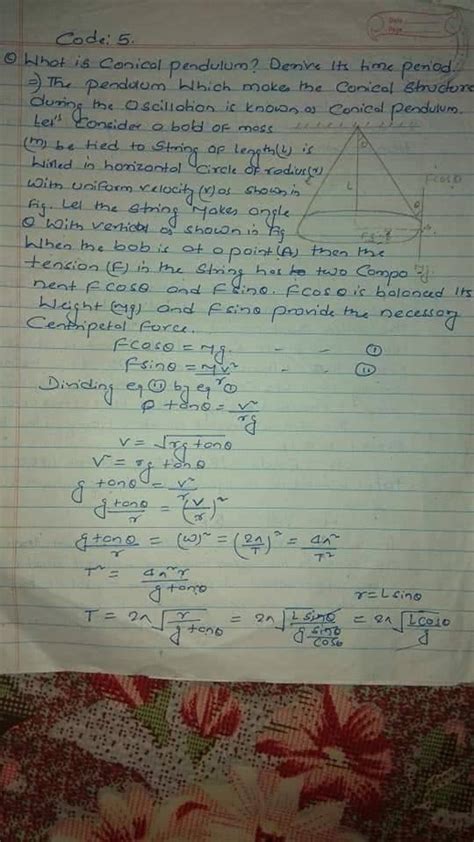 Date
Page
Code: 5.
Q What is Conical pendulum? Derive Its time period.
⇒) The pendulum Which makes the Conical Structure
during the Oscillation is known as Conical pendulum.
Let's Consider a bold of mass
(m) be tied to String of length(L) is
hirled in horizontal Circle of radius(r)
With uniform velocity (v) as shown in
fig. Let the String Makes angle
θ With vertical as shown in fig
When the bob is at a point (A) then the
tension (F) in the String has to two Compo
nent Fcosθ and Fsinθ. Fcosθ is balanced Its
Weight (Mg) and Fsinθ provide the necessary
Centripetal force.
Fcosθ = Mg - - ①
Fsinθ = Mv²/r - - ⑪
Dividing eq ⑪ by eq ①
tanθ = v²/rg
v = √rg tanθ
v² = rg tanθ
g tanθ = v²/r
g tanθ/r = (v/r)²
g tanθ/r = (ω)² = (2π/T)² = 4π²/T²
T² = 4π²r/g tanθ
r = L sinθ
T = 2π√r/g tanθ = 2π√L sinθ/g sinθ/cosθ = 2π√Lcosθ/g
θ
L
Fcosθ
θ